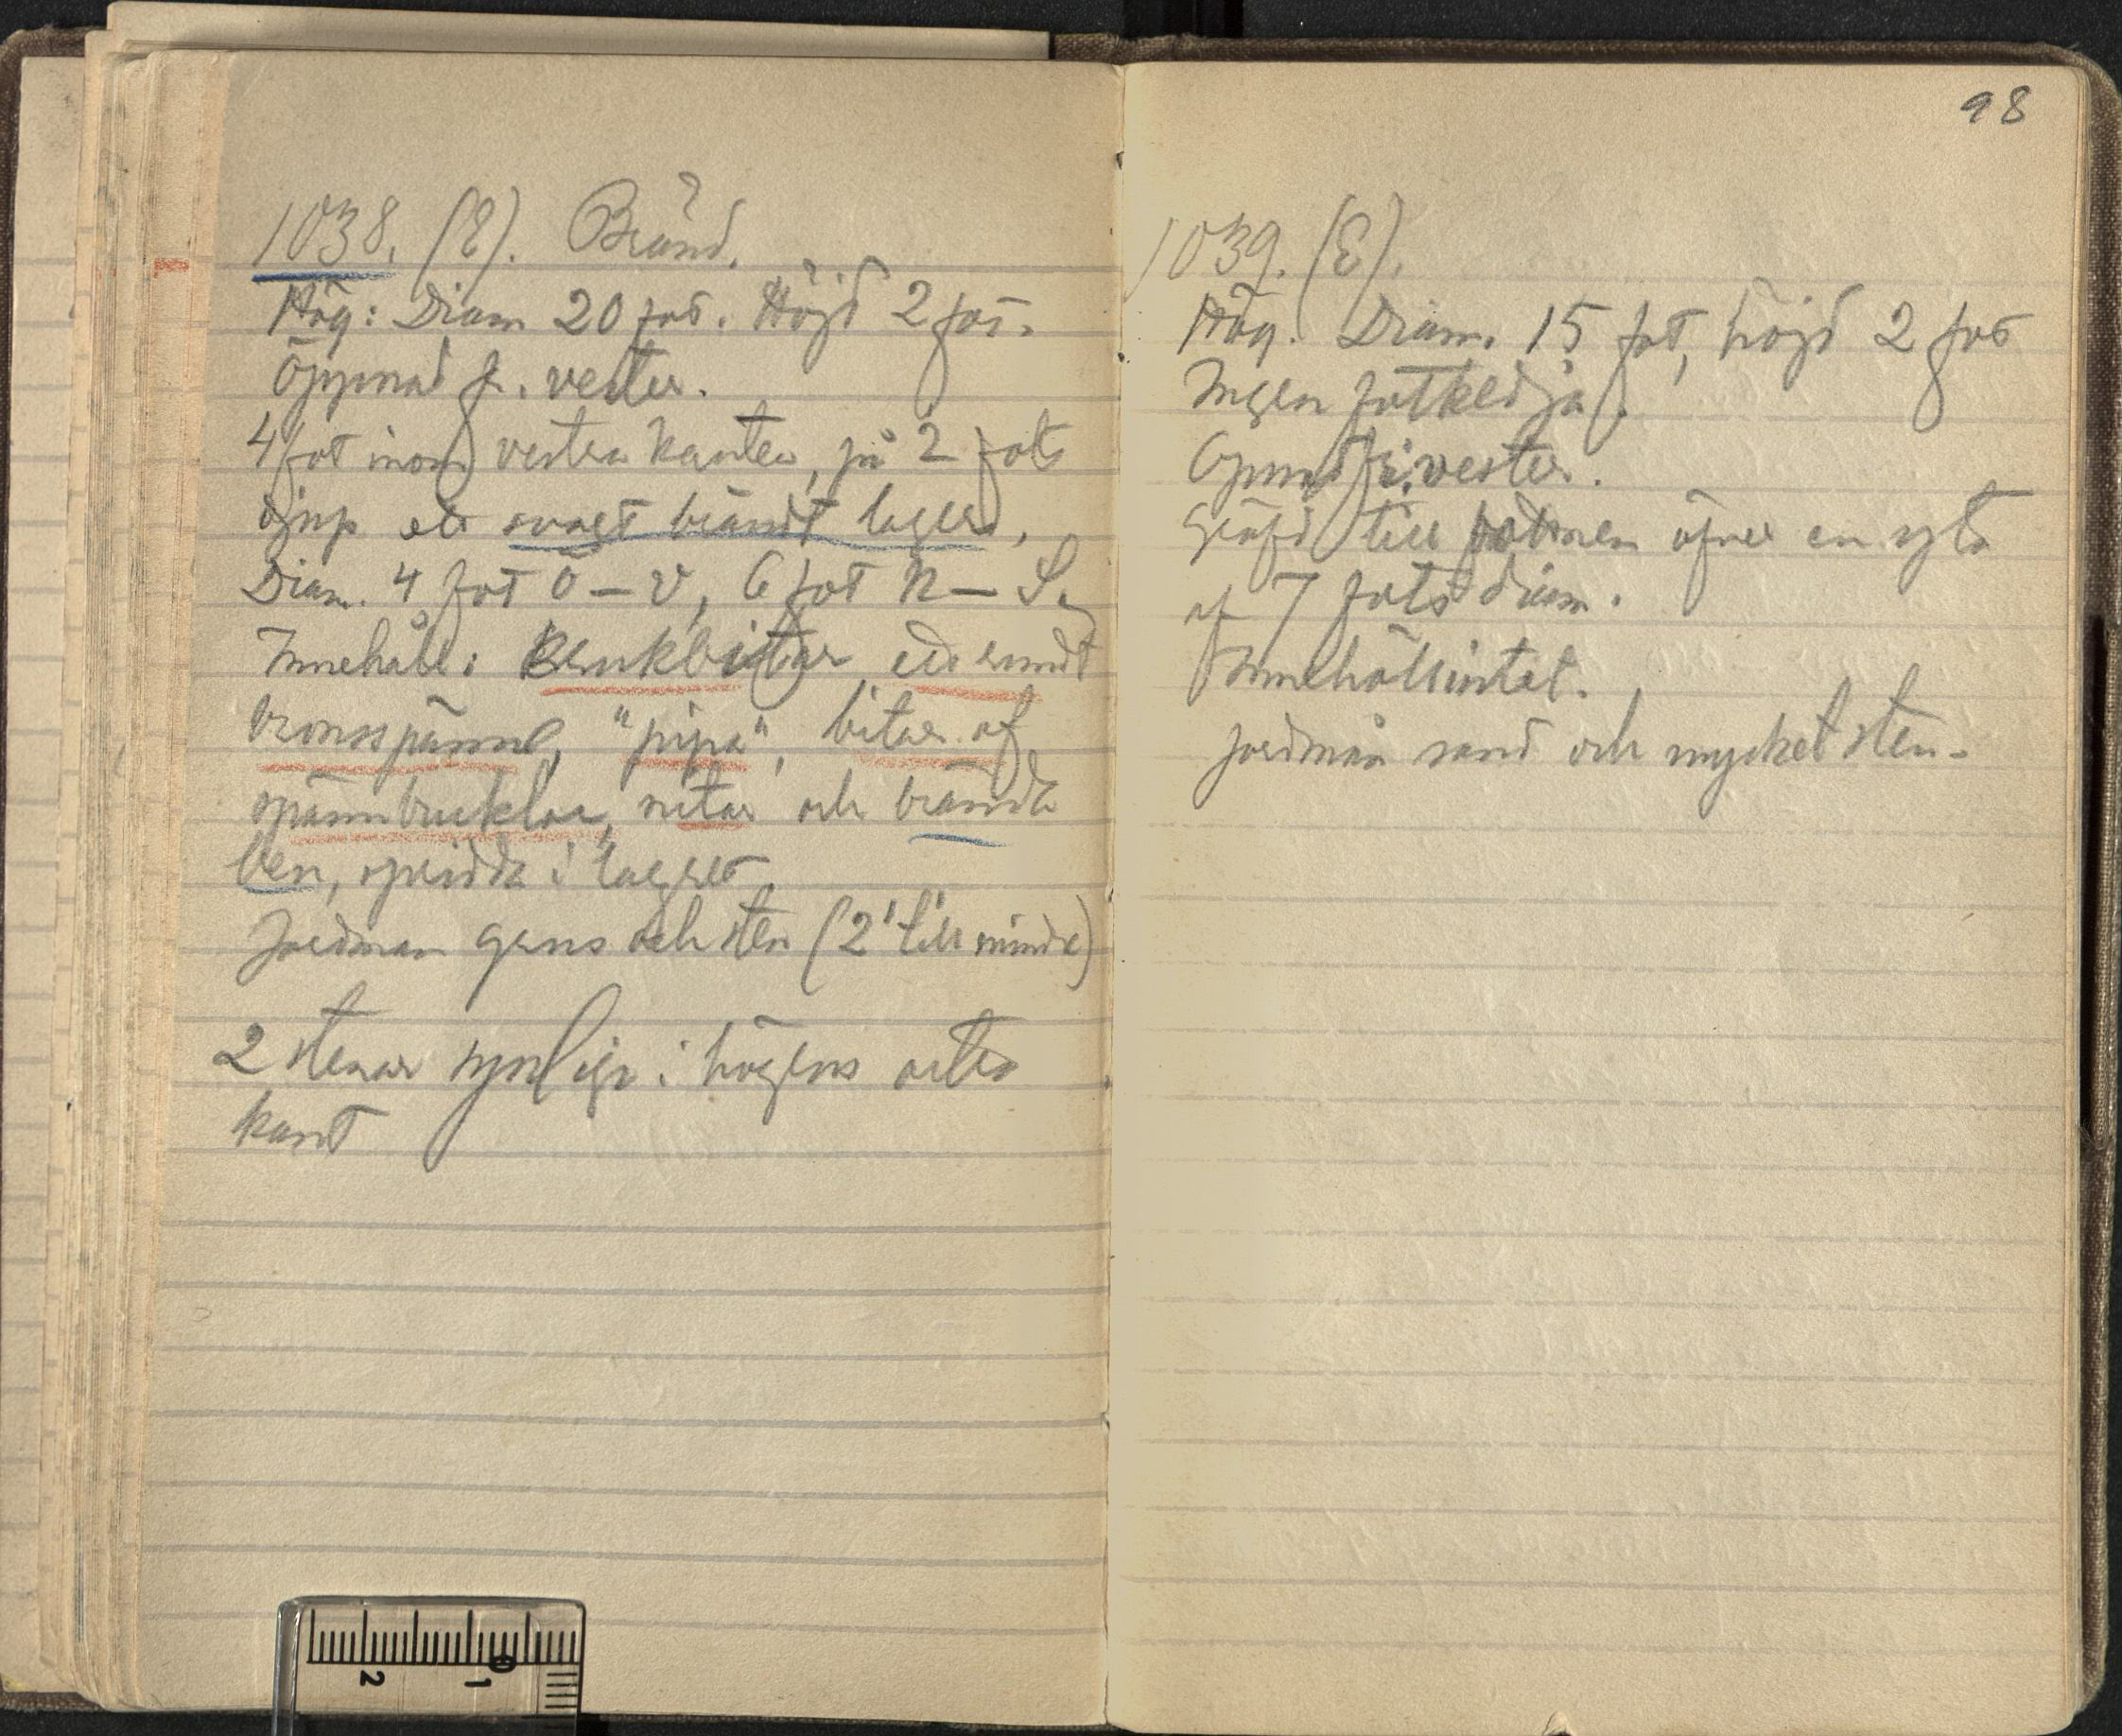 1038. (E). Bränd.
Hög: Diam 20 fot. Höjd 2 fot.
Öppnad fr. vester.
4 fot inom vestra kanten, på 2 fots
djup ett svagt brändt lager,
Diam. 4 fot Ö – V, 6 fot N – S.
Innehåll: Krukbitar, ett rundt
bronsspänne, "pipa", bitar af
spännbucklor, nitar och brända
ben, spridda i lagret.
Jordmån grus och sten (2' till mindre)
2 stenar synliga i högens östra
kant
98
1039. (E).
Hög. Diam. 15 fot, höjd 2 fot
Ingen fotkedja.
Öppnad fr. vester.
Gräfd till botten öfver en yta
af 7 fots diam.
Innehöll intet.
Jordmån sand och mycket sten.
2 1 0